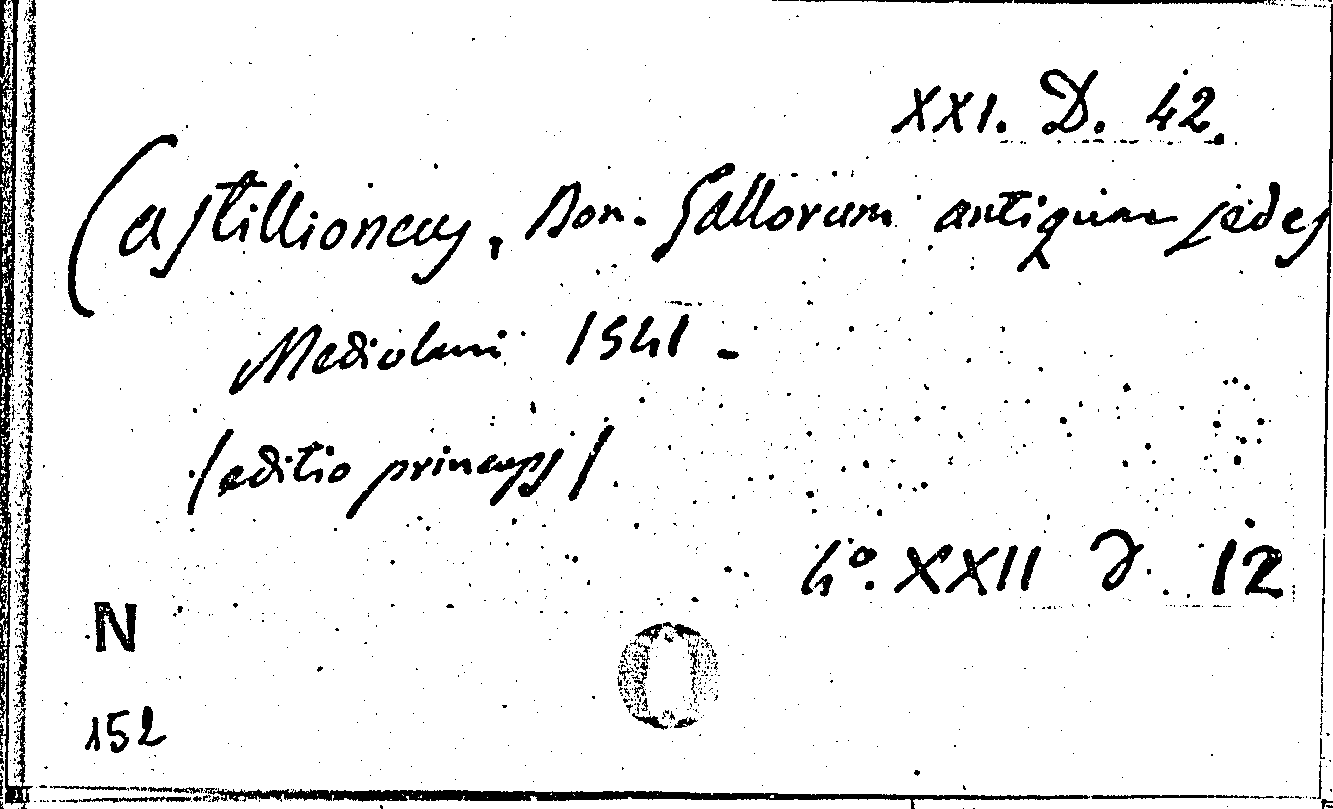 XXI. D. 42.
Castillioneus, Bon. Gallorum antiquae sedes
Mediolani 1541 -
/editio princeps/
4°. XXII D. 12
N
152